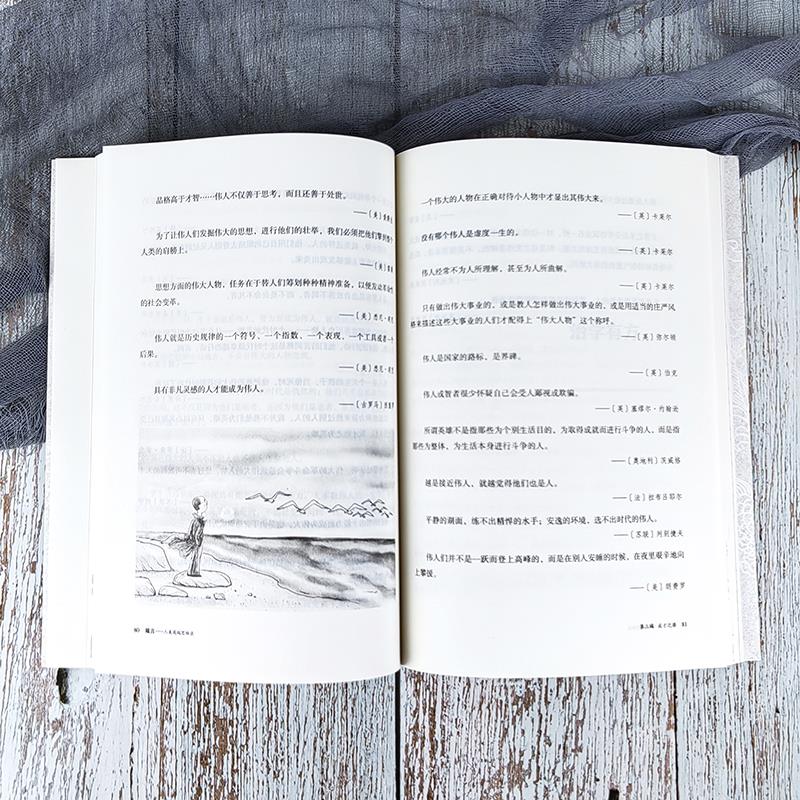 品格高于才智……伟人不仅善于思考，而且还善于处世。
——［美］
为了让伟人们发掘伟大的思想，进行他们的壮举，我们必须把他们擎到整个
人类的肩膀上。
——［美］
思想方面的伟大人物，任务在于替人们筹划种种精神准备，以便发动革命性
的社会变革。
——［美］悉尼·胡克
伟人就是历史规律的一个符号、一个指数、一个表现、一个工具或者一个
后果。
——［美］悉尼·胡克
具有非凡灵感的人才能成为伟人。
——［古罗马］西塞罗
80 箴言——人类的
一个伟大的人物在正确对待小人物中才显出其伟大来。
——［英］卡莱尔
没有哪个伟人是虚度一生的。
——［英］卡莱尔
伟人经常不为人所理解，甚至为人所曲解。
——［英］卡莱尔
只有做出伟大事业的，或是教人怎样做出伟大事业的，或是用适当的庄严风
格来描述这些大事业的人们才配得上“伟大人物”这个称呼。
——［英］弥尔顿
伟人是国家的路标，是界碑。
——［英］伯克
伟人或智者很少怀疑自己会受人鄙视或欺骗。
——［英］塞缪尔·约翰逊
所谓英雄不是指那些为个别生活目的，为取得成就而进行斗争的人，而是指
那些为整体，为生活本身进行斗争的人。
——［奥地利］茨威格
越是接近伟人，就越觉得他们也是人。
——［法］拉布吕耶尔
平静的湖面，练不出精悍的水手；安逸的环境，造不出时代的伟人。
——［苏联］列别捷夫
伟人们并不是一跃而登上高峰的，而是在别人安睡的时候，在夜里艰辛地向
上攀援。
——［美］朗费罗
第三编·成才之路 81